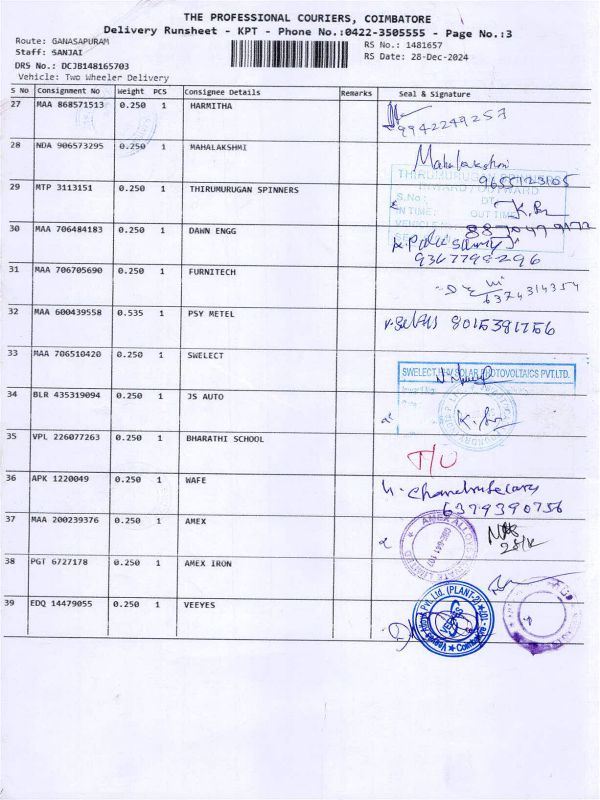 THE PROFESSIONAL COURIERS, COIMBATORE
Delivery Runsheet - KPT - Phone No.:0422-3505555 - Page No.:3
Route: GANASAPURAM RS No.: 1481657
Staff: SANJAI RS Date: 28-Dec-2024
DRS No.: DCJB148165703
Vehicle: Two Wheeler Delivery
S No Consignment No Weight PCS Consignee Details Remarks Seal & Signature
27 MAA 868571513 0.250 1 HARMITHA
9942249257
28 NDA 906573295 0.250 1 MAHALAKSHMI Mahalakshmi
THIRUMURUGAN SPINNERS
29 MTP 3113151 0.250 1 THIRUMURUGAN SPINNERS
S.No :
IN TIME : OUT TIME
30 MAA 706484183 0.250 1 DAWN ENGG
9367798296
31 MAA 706705690 0.250 1 FURNITECH
6374314354
32 MAA 600439558 0.535 1 PSY METEL
33 MAA 706510420 0.250 1 SWELECT
SWELECT NEW SOLAR PHOTOVOLTAICS PVT.LTD.
34 BLR 435319094 0.250 1 JS AUTO
35 VPL 226077263 0.250 1 BHARATHI SCHOOL
36 APK 1220049 0.250 1 WAFE
6379390756
37 MAA 200239376 0.250 1 AMEX
38 PGT 6727178 0.250 1 AMEX IRON
39 EDQ 14479055 0.250 1 VEEYES
Pvt. Ltd. (PLANT-2)
Coimbatore